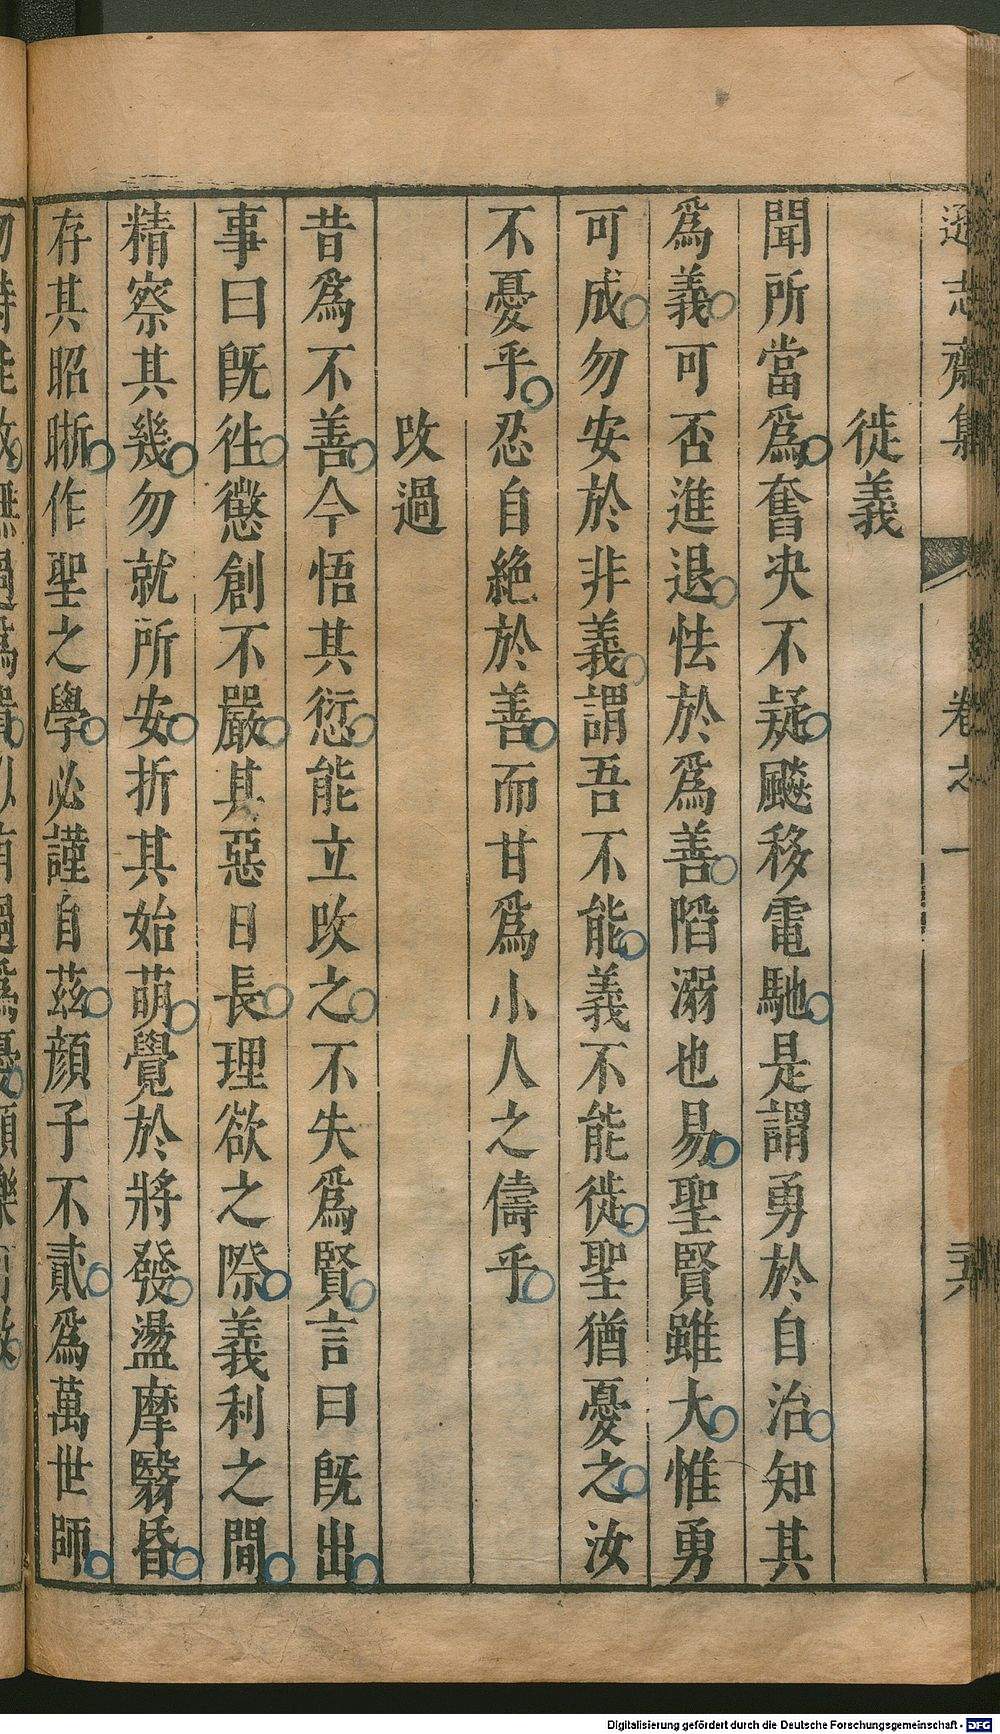 遜志齋集
卷之一
徙義
聞所當爲奮决不疑飈移電馳是謂勇於自治知其
爲義可否進退怯於爲善陷溺也易聖賢雖大惟勇
可成勿安於非義謂吾不能義不能徙聖猶憂之汝
不憂乎忍自絶於善而甘爲小人之儔乎
攺過
昔爲不善今悟其愆能立攺之不失爲賢言曰旣出
事曰旣徃懲創不嚴其惡日長理欲之際義利之間
精察其幾勿就所安折其始萌覺於將發盪摩翳昏
存其昭晣作聖之學必謹自茲顔子不貳爲萬世師
Digitalisierung gefördert durch die Deutsche Forschungsgemeinschaft - DFG